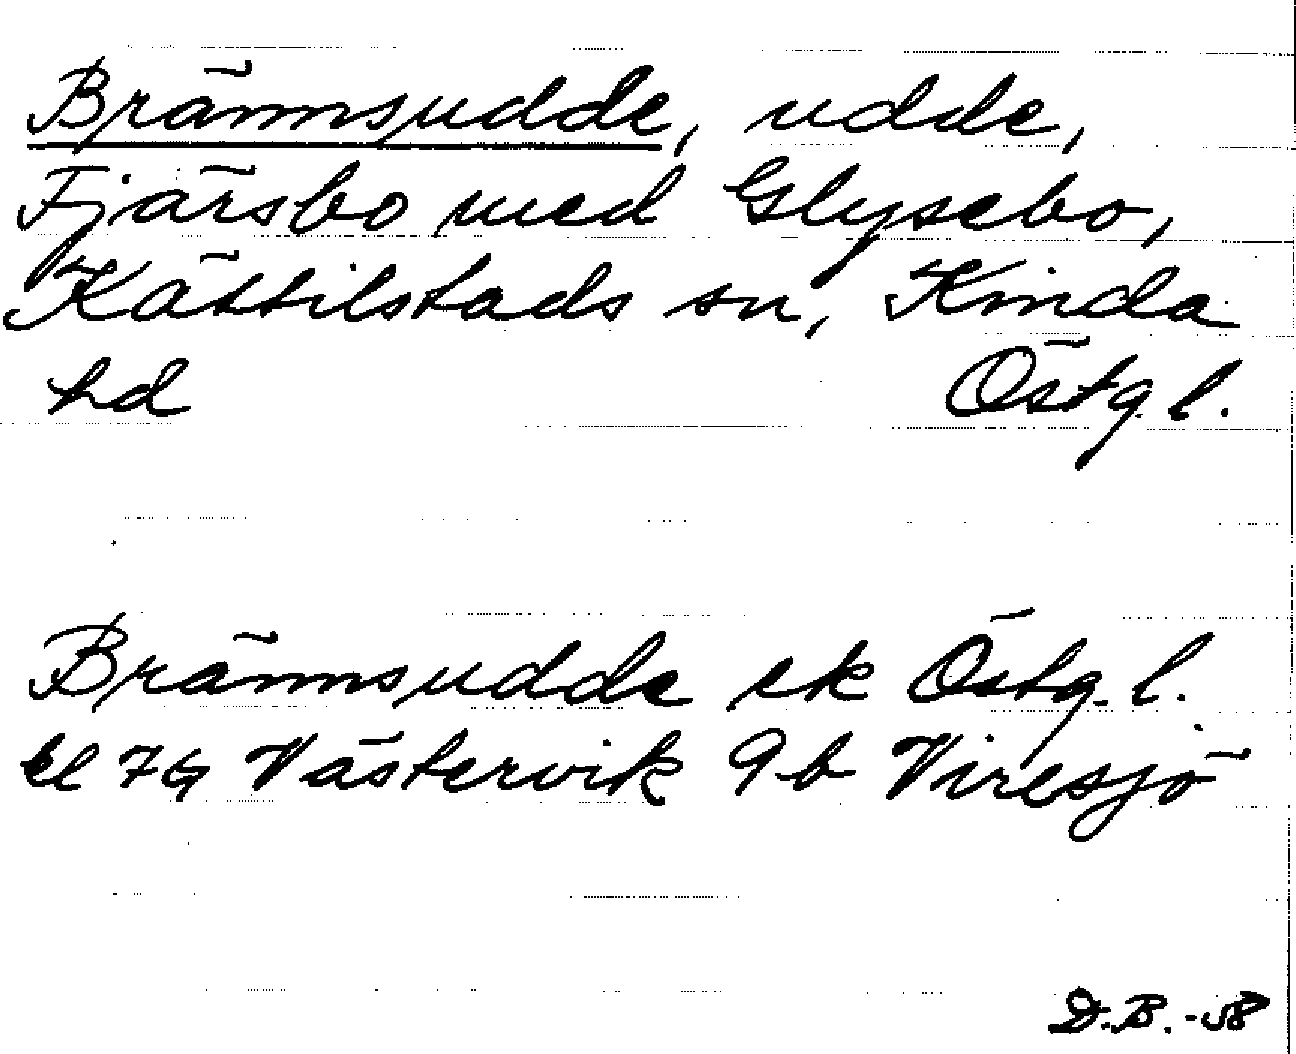 Brännsudde, udde,
Fjärsbo med Glysebo,
Kättilstads sn, Kinda
hd Östg. l.
Brännsudde ek Östg. l.
bl 7G Västervik 9b Viresjö
D.B.-58